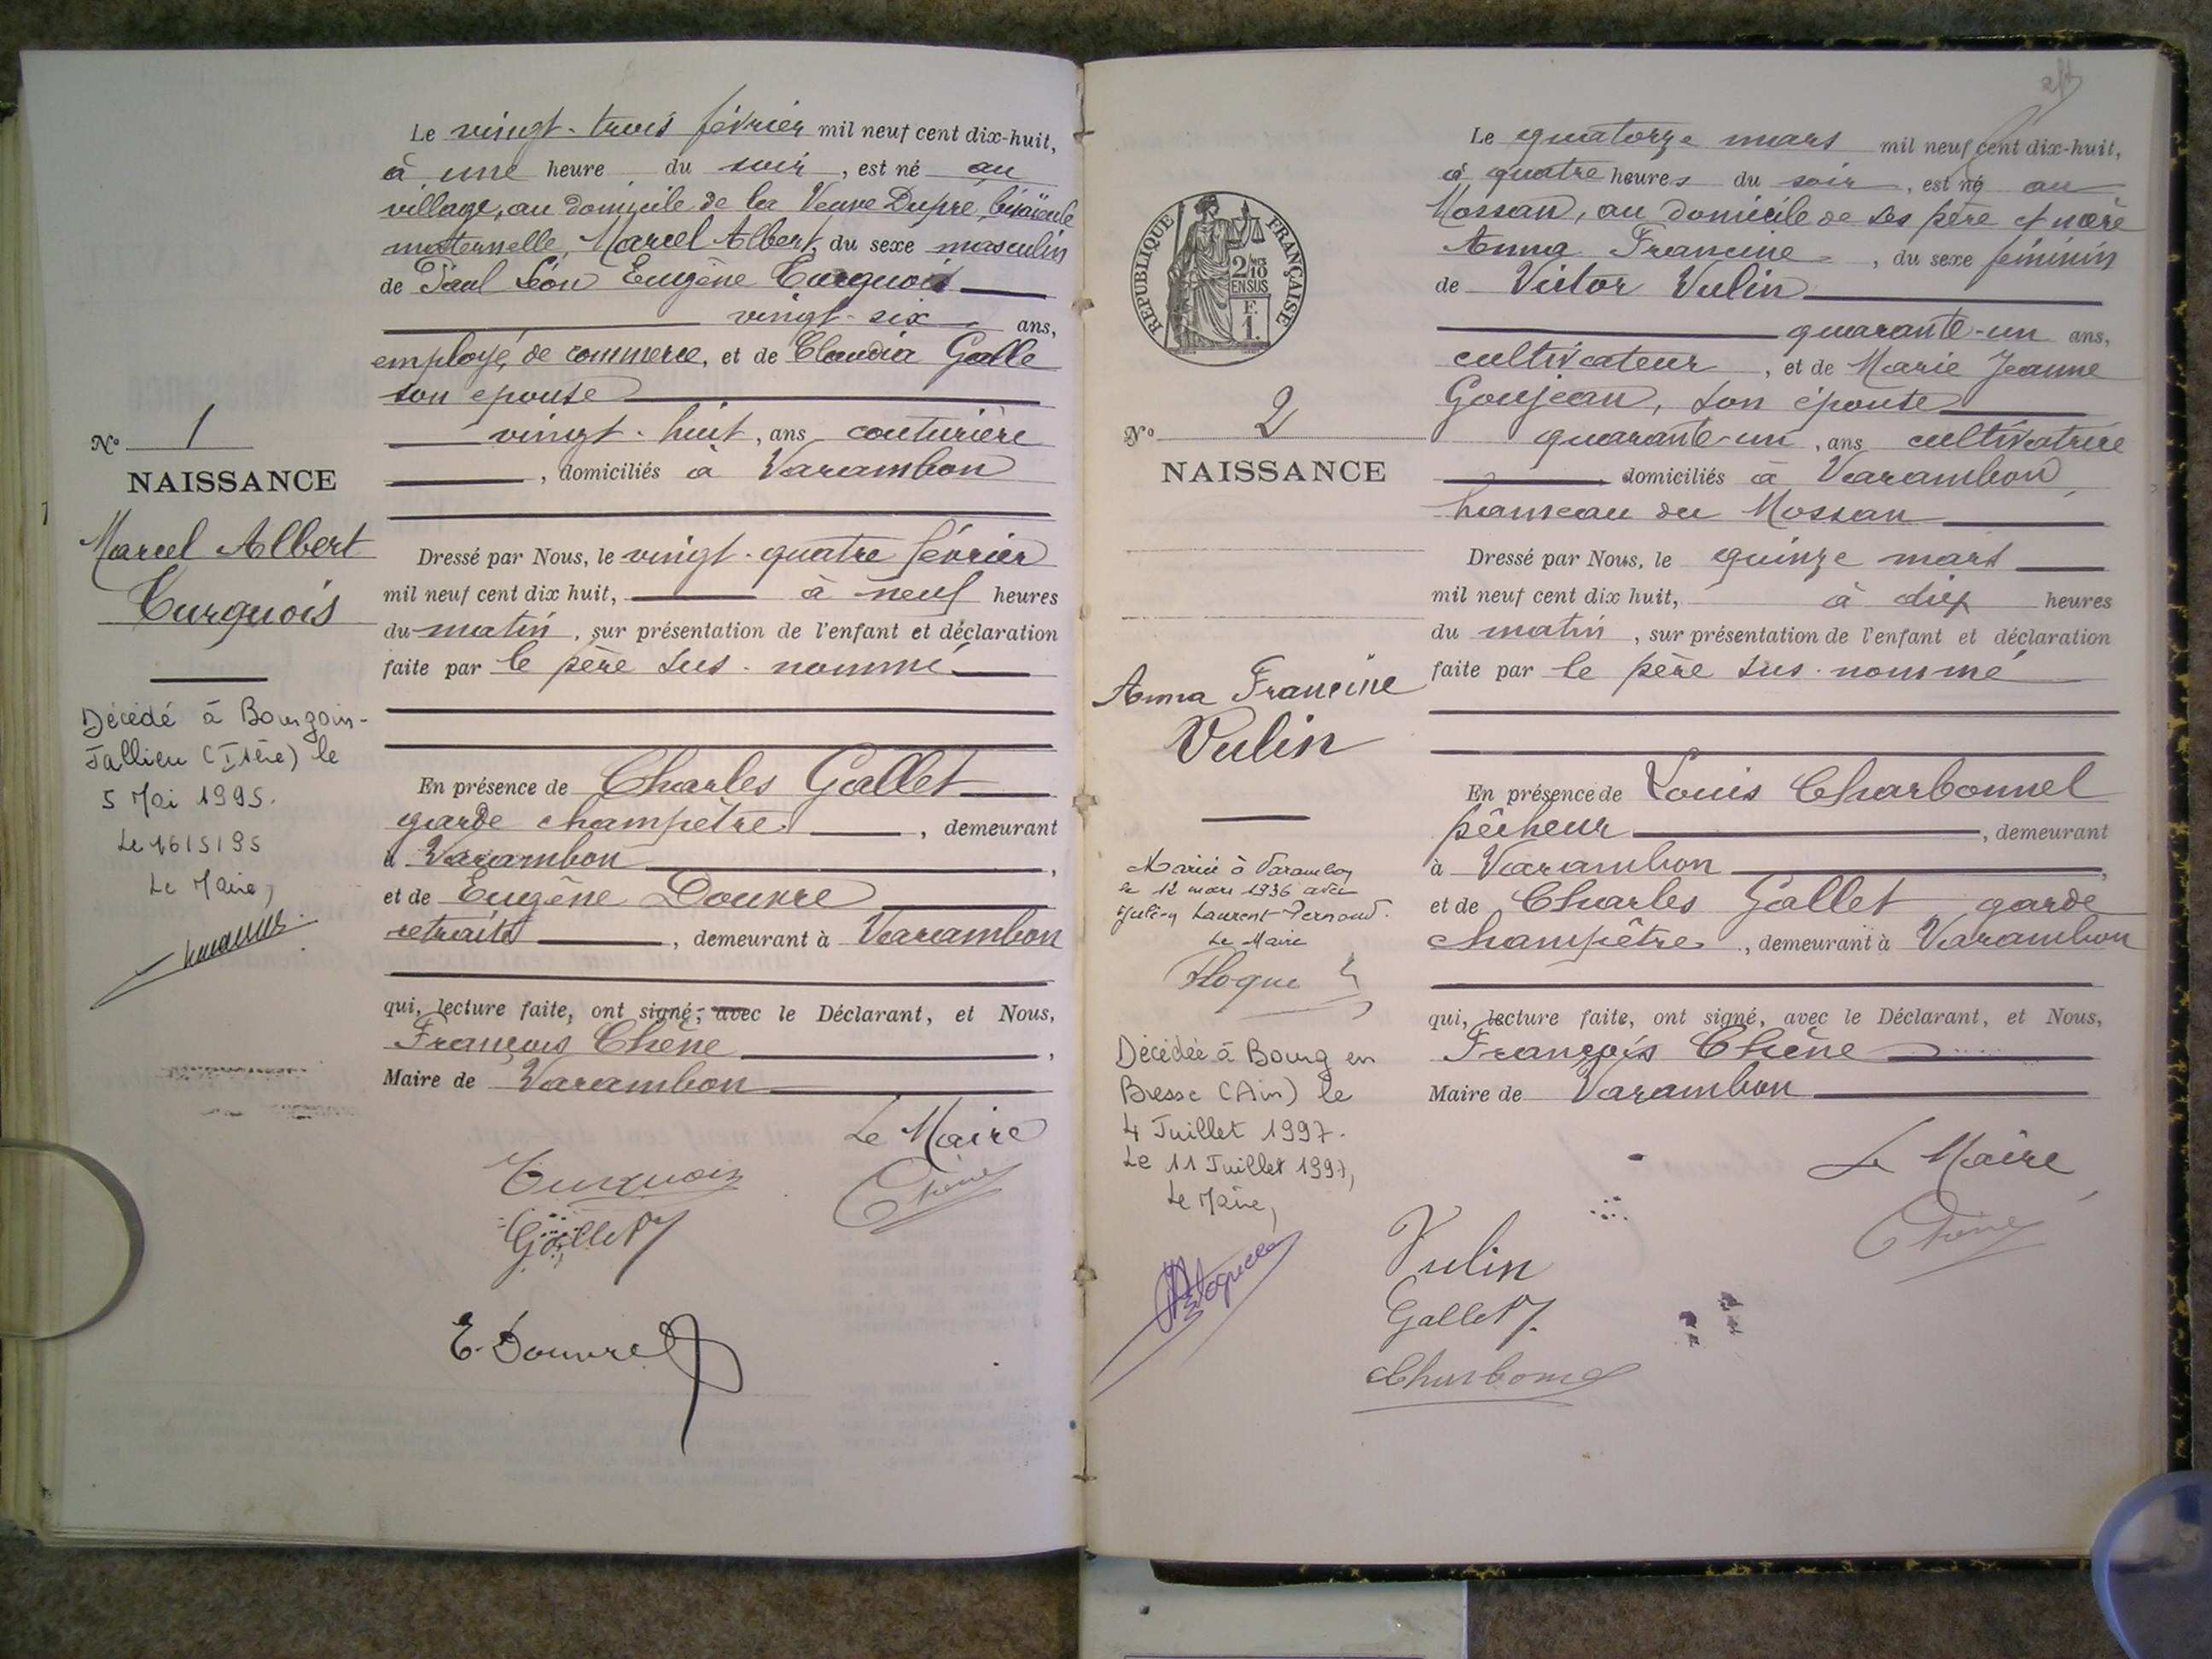 Le vingt-trois février mil neuf cent dix-huit,
à une heure du soir, est né au
village, au domicile de la Veuve Dupré, bisaïeule
maternelle, Marcel Albert, du sexe masculin
de Paul Léon Eugène Turquois
vingt-six ans,
employé de commerce, et de Claudia Galle
son epouse
vingt-huit, ans couturière
, domiciliés à Varambon
Nº 1
NAISSANCE
Marcel Albert
Turquois
Dressé par Nous, le vingt-quatre février
mil neuf cent dix huit, à neuf heures
du matin, sur présentation de l'enfant et déclaration
faite par le père sus-nommé
Décédé à Bourgoin-
Jallieu (Isère) le
5 Mai 1995.
Le 16/5/95
Le Maire,
En présence de Charles Gallet
garde champêtre, demeurant
à Varambon,
et de Eugène Douvre
retraité, demeurant à Varambon
qui, lecture faite, ont signé, avec le Déclarant, et Nous,
François Chêne,
Maire de Varambon
Le Maire
Turquois
Chêne
Gallet
E. Douvre
Le quatorze mars mil neuf cent dix-huit,
à quatre heures du soir, est né au
Mossan, au domicile de ses père et mère
Anna Francine, du sexe féminin
de Victor Vulin
quarante-un ans,
cultivateur, et de Marie Jeanne
Goujean, son épouse
quarante-un, ans cultivatrice
domiciliés à Varambon,
hameau du Mossan
REPUBLIQUE FRANÇAISE
2/10
EN SUS
F.
1.
Nº 2
NAISSANCE
Anna Francine
Vulin
Dressé par Nous, le quinze mars
mil neuf cent dix huit, à dix heures
du matin, sur présentation de l'enfant et déclaration
faite par le père sus-nommé
Mariée à Varambon
le 12 mars 1936 avec
Laurent Pernoud.
Le Maire
Décédée à Bourg en
Bresse (Ain) le
4 Juillet 1997.
Le 11 Juillet 1997,
Le Maire,
En présence de Louis Charbonnel
pêcheur, demeurant
à Varambon,
et de Charles Gallet garde
champêtre, demeurant à Varambon
qui, lecture faite, ont signé, avec le Déclarant, et Nous,
François Chêne
Maire de Varambon
Le Maire
Chêne
Vulin
Gallet
Charbonnel